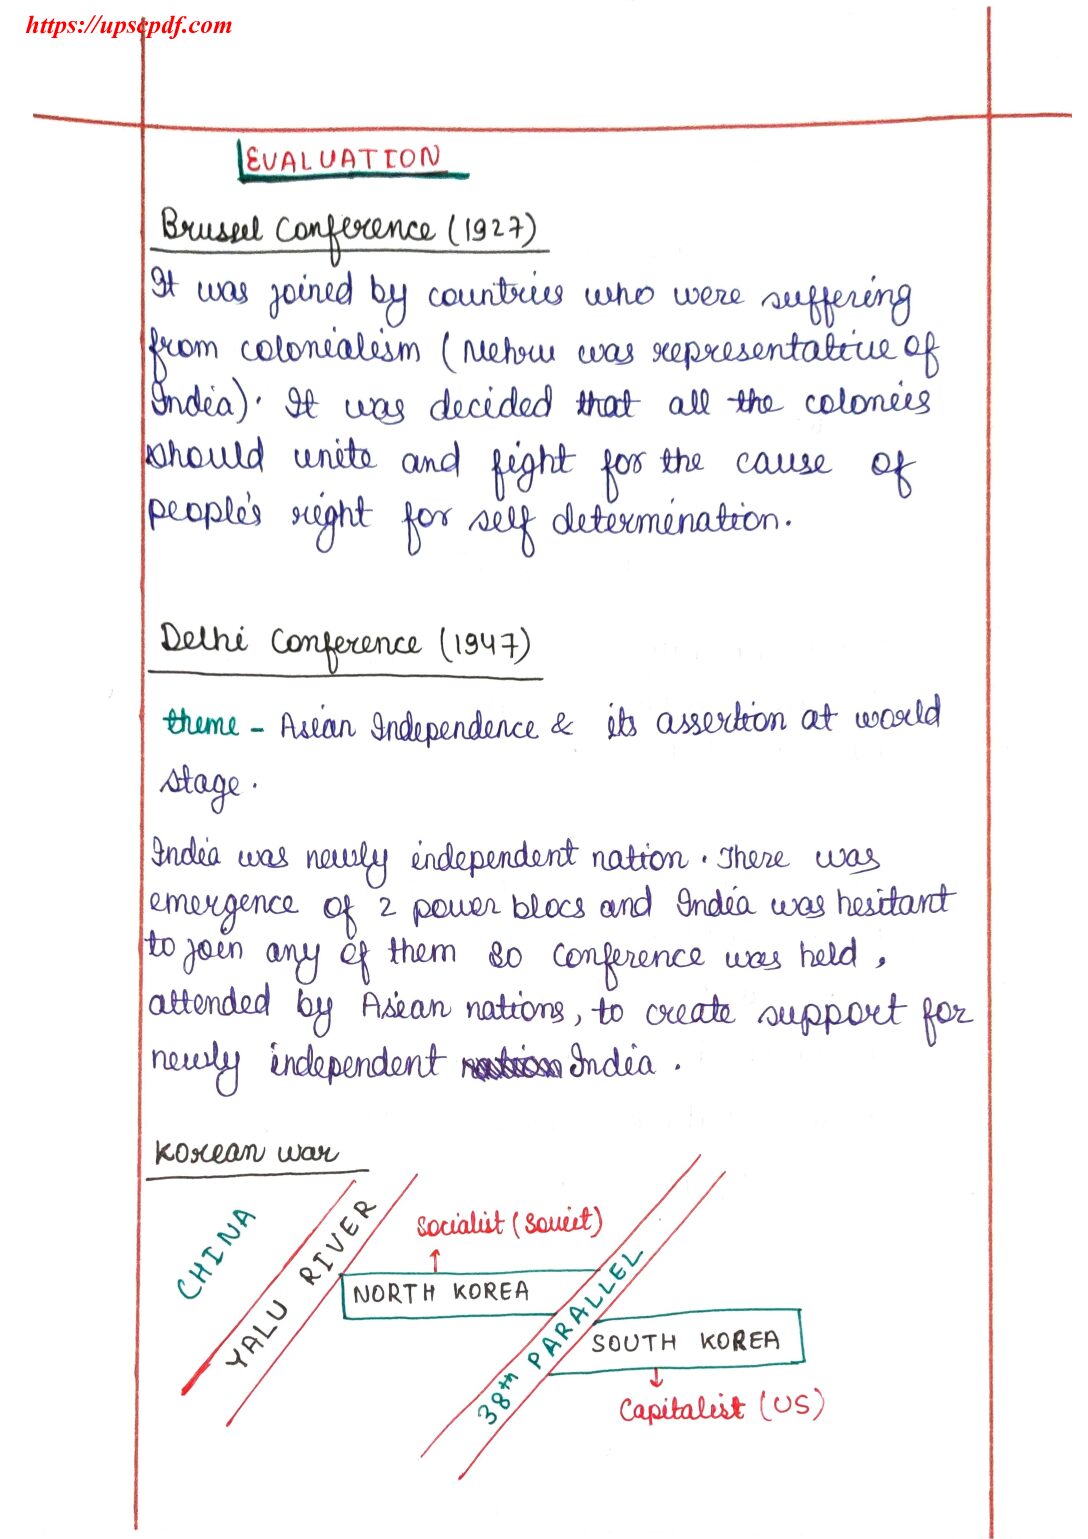 https://upscpdf.com
EVALUATION
Brussel Conference (1927)
It was joined by countries who were suffering
from colonialism (Nehru was representative of
India). It was decided that all the colonies
should unite and fight for the cause of
people's right for self determination.
Delhi Conference (1947)
theme - Asian Independence & its assertion at world
stage.
India was newly independent nation. There was
emergence of 2 power blocs and India was hesitant
to join any of them so conference was held,
attended by Asian nations, to create support for
newly independent nation India.
Korean war
CHINA
YALU RIVER
Socialist (Soviet)
NORTH KOREA
38th PARALLEL
SOUTH KOREA
Capitalist (US)